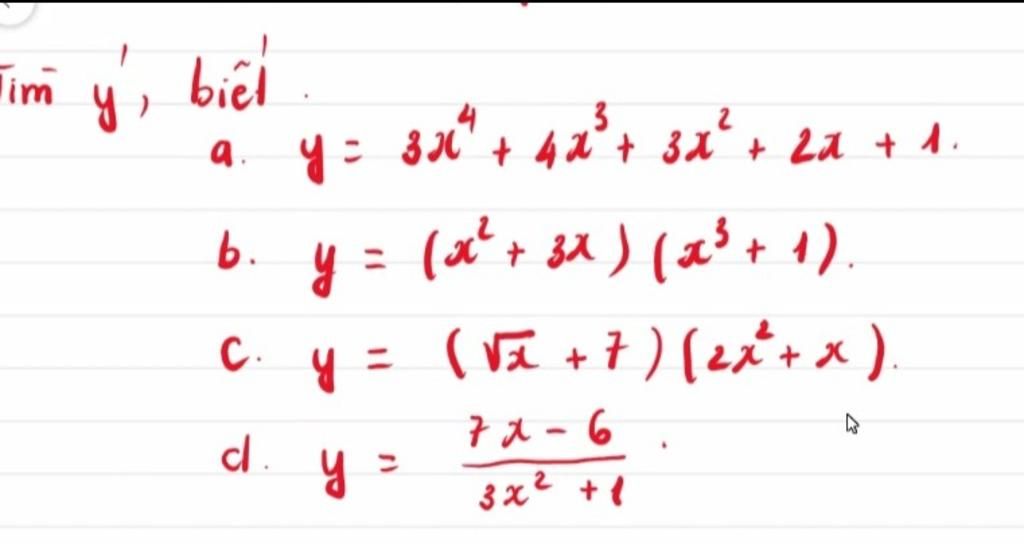 Tìm y', biết.
a. y = 3x⁴ + 4x³ + 3x² + 2x + 1.
b. y = (x² + 3x)(x³ + 1).
c. y = (√x + 7)(2x² + x).
d. y = (7x - 6)/(3x² + 1).